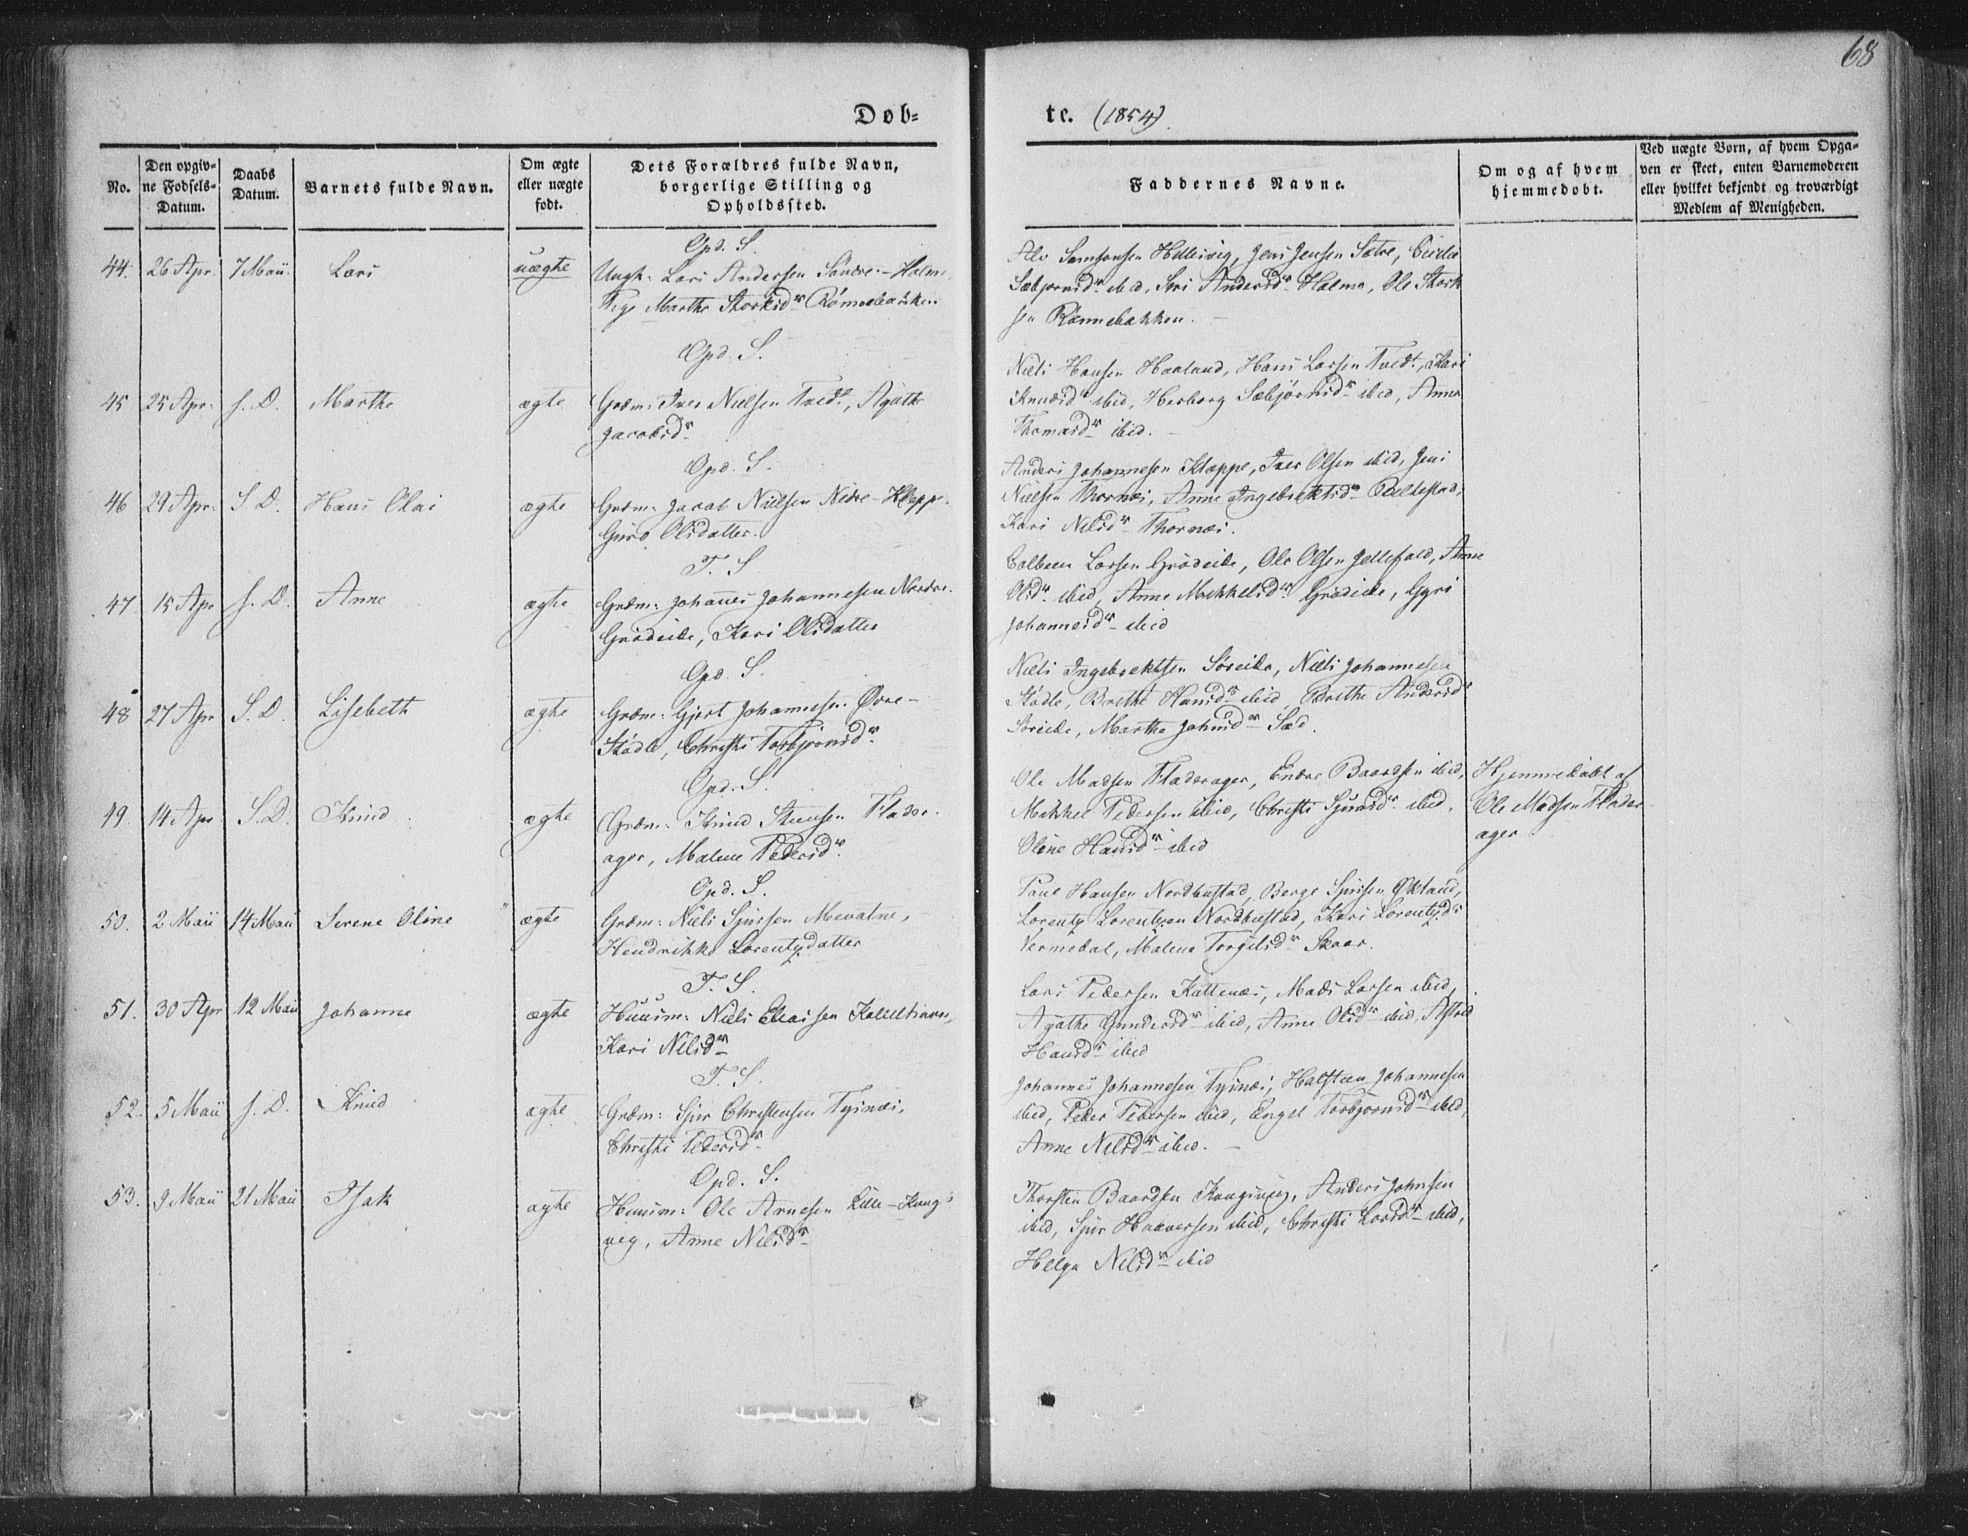 68
Døb=
te. (1854)
No.
Den opgiv=
ne Fødsels=
Datum.
Daabs
Datum.
Barnets fulde Navn.
Om ægte
eller uægte
født.
Dets Forældres fulde Navn,
borgerlige Stilling og
Opholdssted.
Faddernes Navne.
Om og af hvem
hjemmedøbt.
Ved uægte Børn, af hvem Opga=
ven er skeet, enten Barnemoderen
eller hvilket bekjendt og troværdigt
Medlem af Menigheden.
Opd. S.
44. 26 Apr. 7 Maii. Lars uægte Ungk: Lars Andersen Søndre-Holm
Pige Marthe Storksdr Rømmebakken
Alv Samsonsen Hillesvig, Jens Jensen Sætre,
Sæbjørnsdr ibid, Siri Andersdr Holme, Ole Stork
sen Rømmebakken.
Opd. S.
45 25 Apr. s. D. Marthe ægte Grdm: Iver Nielsen Tvedt, Agathe
Jacobsdr
Niels Hansen Haaland, Hans Larsen Tvedt, Kari
Knudsdr ibid, Herborg Sæbjørnsdr ibid, Anna
Thomasdr ibid.
Opd. S.
46 29 Apr. S D. Hans Olai ægte Grdm: Jacob Nielsen Nedre-Klepp.
Guro Olsdatter.
Anders Johannesen Klæppe, Iver Olsen ibid, Jens
Nielsen Thornæs, Anne Ingebrektsdr
Kari Nilsdr Thornæs.
T. S
47. 15 Apr s. D. Anne ægte Grdm: Johannes Johannesen Nordre-
Grødeide, Kari Olsdatter
Colbeen Larsen Grødeide, Ole Olsen Jelleflad, Anne
Olsdr ibid, Anne Mikkelsdr Grødeide, Gyri
Johannesdr ibid
Opd. S.
48 27 Apr S. D. Lisebeth ægte Grdm: Gjert Johannesen Øvre-
Stødle, Christi Torbjørnsdr.
Niels Ingebrektsen Søreide, Niels Johannesen
Stødle, Brithe Hansdr ibid, Brithe Andersdr
Søreide, Marthe Johnsdr Sæd.
Opd. S.
49. 14 Apr S. D. Knud ægte Grdm: Knud Steensen Flader-
ager, Malene Pedersdr.
Ole Madsen Fladerager, Endre Baardsen ibid,
Mikkel Pedersen ibid, Christi Sjursdr ibid,
Oline Hansdr ibid
Hjemmedøbt af
Ole Madsen Flader
ager
Opd. S.
50. 2 Maii 14 Maii Serene Oline ægte Grdm: Niels Sjursen Mevatne,
Hendrikke Lorentzdatter
Paul Hansen Nordhustad, Berge Sjursen Økland,
Lorentz Lorentzen Nordhustad, Kari Lorentzdr
Vernedal, Malene Torgilsdr Skaar.
T. S.
51. 30 Apr 12 Maii Johanne ægte Huusm: Niels Eliassen
Kari Nilsdr
Lars Pedersen Kattenæs, Mads Larsen ibid,
Agathe Gundersdr ibid, Anne Olsdr ibid, Astrid
Hansdr ibid
T. S.
52. 5 Maii s. D. Knud ægte Grdm: Sjur Christensen Tysnæs,
Christi Pedersdr
Johannes Johannesen Tysnæs, Halsteen Johannesen
ibid, Peder Pedersen ibid, Engel Torbjørnsdr ibid,
Anne Nilsdr ibid.
Opd. S.
53. 9 Maii 21 Maii Isak ægte Huusm: Ole Arnesen Lille-Kungs
vig, Anne Nilsdr
Thorsten Baardsen Kungsvig, Anders Johnsen
ibid, Sjur Haaversen ibid, Christi Larsdr ibid,
Helga Nilsdr ibid